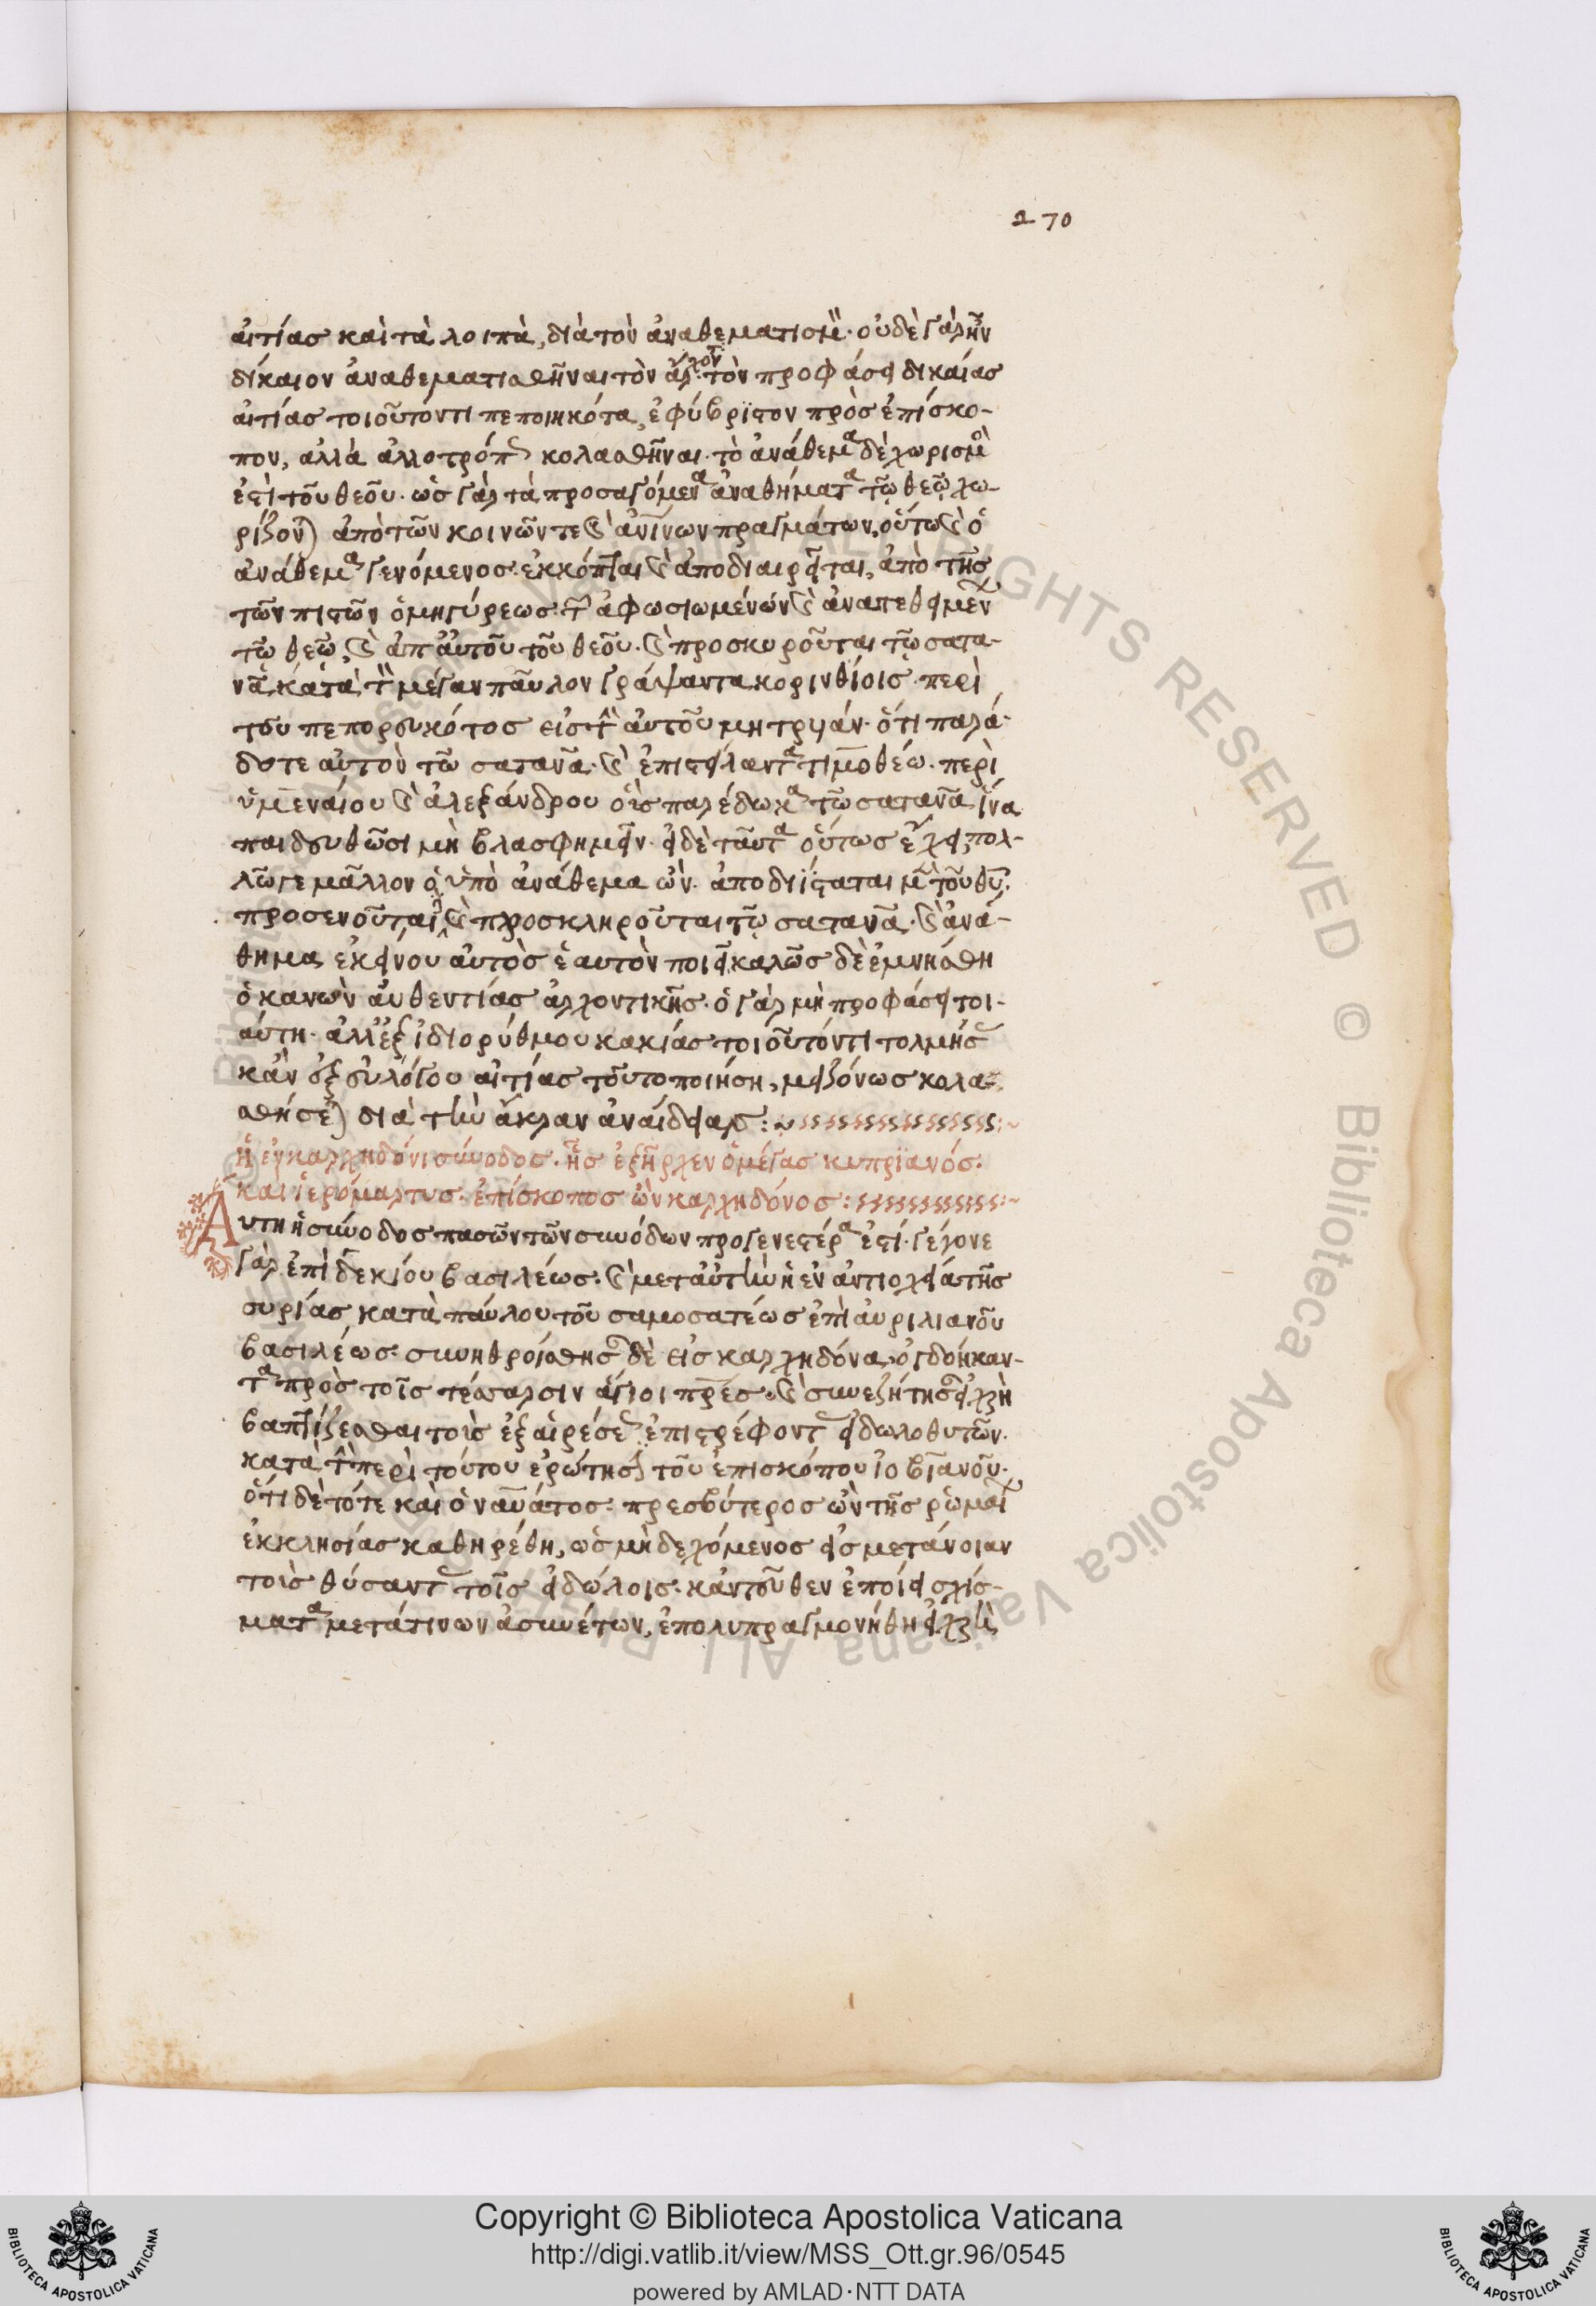 270
αἰτίας καὶ τὰ λοιπὰ, διὰ τὸν ἀναθεματισμὸν· οὐδὲ γὰρ ἦν
δίκαιον ἀναθεματισθῆναι τὸν ἄρχοντα τὸν προφάσει δικαίας
αἰτίας τοιοῦτόν τι πεποιηκότα, ἐφύβριστον πρὸς ἐπίσκο-
πον, ἀλλὰ ἀλλοτρόπως κολασθῆναι· τὸ ἀνάθεμα δὲ χωρισμὸς
ἐστὶ τοῦ θεοῦ· ὡς γὰρ τὰ προσαγόμενα ἀναθήματα τῷ θεῷ χω-
ρίζονται ἀπὸ τῶν κοινῶν τε καὶ ἀνθρωπίνων πραγμάτων, οὕτω καὶ ὁ
ἀνάθεμα γενόμενος ἐκκόπτεται καὶ ἀποδιαιρεῖται, ἀπὸ τῆς
τῶν πιστῶν ὁμηγύρεως· τῶν ἀφωσιωμένων καὶ ἀνατεθειμένων
τῷ θεῷ, καὶ ἀπ' αὐτοῦ τοῦ θεοῦ· καὶ προσκυροῦται τῷ σατα-
νᾷ, κατὰ τὸν μέγαν παῦλον γράψαντα κορινθίοις περὶ
του πεπορνευκότος εἰς τὴν αὐτοῦ μητρυιάν· ὅτι παρά-
δοτε αὐτὸν τῷ σατανᾷ· καὶ ἐπιστείλαντα τιμοθέω· περὶ
ὑμεναίου καὶ ἀλεξάνδρου οὓς παρέδωκα τῷ σατανᾷ ἵνα
παιδευθῶσι μὴ βλασφημεῖν· εἰ δὲ ταῦτα οὕτως ἔχει, πολ-
λῷ γε μᾶλλον ὁ ὑπὸ ἀνάθεμα ὢν· ἀποδιίσταται μὲν τοῦ θυ·
προσενοῦται καὶ προσκληροῦται τῷ σατανᾷ· καὶ ἀνά-
θημα ἐκείνου αὐτὸς ἑαυτὸν ποιεῖ, καλῶς δὲ ἐμνήσθη
ὁ κανὼν αὐθεντίας ἀρχοντικῆς· ὁ γὰρ μὴ προφάσει τοι-
αύτη· ἀλλ' ἐξ ἰδιορύθμου κακίας τοιοῦτόν τι τολμήσας
κἂν ἐξ εὐλόγου αἰτίας τοῦτο ποιήση, μειζόνως κολα-
σθήσεται διὰ τὴν ἄκραν ἀναίδειαν:~
ἡ ἐν καρχηδόνι σύνοδος· ἧς ἐξῆρχεν ὁ μέγας κυπριανός·
καὶ ἱερομάρτυς· ἐπίσκοπος ὢν καρχηδόνος:~
Αυτη ἡ σύνοδος πασῶν τῶν συνόδων προγενεστέρα ἐστί· γέγονε
γὰρ ἐπὶ δεκίου βασιλέως· καὶ μετ' αὐτὴν ἡ ἐν ἀντιοχεία τῆς
συρίας κατὰ παύλου τοῦ σαμοσατέως ἐπὶ αὐριλιανοῦ
βασιλέως· συνηθροίσθησαν δὲ εἰς καρχηδόνα, ὀγδοήκον-
τα πρὸς τοῖς τέσσαρσιν ἅγιοι πρες· καὶ συνεζήτησαν εἰ χρὴ
βαπτίζεσθαι τοὺς ἐξ αἱρέσεως ἐπιστρέφοντας εἰδωλοθυτῶν·
κατὰ τὴν περὶ τούτου ἐρώτησιν τοῦ ἐπισκόπου ἰοβιανοῦ·
ὅτι δὲ τότε καὶ ὁ ναυάτος· πρεσβύτερος ὢν τῆς ῥωμαίων
ἐκκλησίας καθηρέθη, ὡς μὴ δεχόμενος εἰς μετάνοιαν
τοὺς θύσαντας τοῖς εἰδώλοις· κἀντεῦθεν ἐποίει σχίσ-
ματα μετά τινων ἀσυνέτων, ἐπολυπραγμονήθη εἰ χρὴ
Copyright © Biblioteca Apostolica Vaticana
http://digi.vatlib.it/view/MSS_Ott.gr.96/0545
powered by AMLAD·NTT DATA